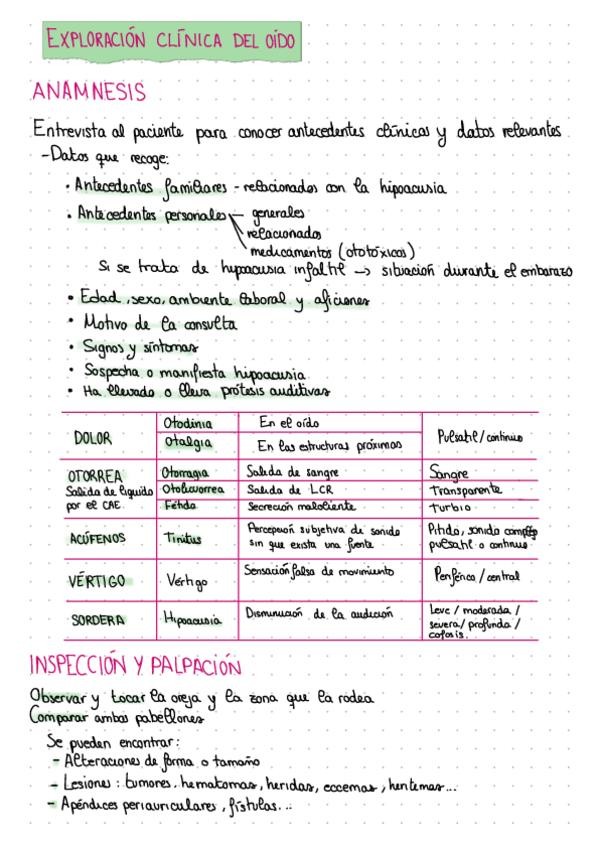 EXPLORACIÓN CLÍNICA DEL OÍDO
ANAMNESIS
Entrevista al paciente para conocer antecedentes clínicos y datos relevantes
- Datos que recoge:
• Antecedentes familiares - relacionados con la hipoacusia
• Antecedentes personales generales
relacionados
medicamentos (ototóxicos)
Si se trata de hipoacusia infaltil → situación durante el embarazo
• Edad, sexo, ambiente laboral y aficiones
• Motivo de la consulta
• Signos y síntomas
• Sospecha o manifiesta hipoacusia
• Ha llevado o lleva prótesis auditivas
DOLOR Otodinia En el oído Pulsatil / continuo
Otalgia En las estructuras próximas
OTORREA Otorragia Salida de sangre Sangre
Salida de liquido Otolicuorrea Salida de LCR Transparente
por el CAE Fétida Secreción maloliente Turbio
ACÚFENOS Tinitus Percepción subjetiva de sonido Pitido, sonido complejo
sin que exista una fuente pulsatil o continuo
VÉRTIGO Vértigo Sensación falsa de movimiento Periférico / central
SORDERA Hipoacusia Disminución de la audición Leve / moderada /
severa / profunda /
cofosis.
INSPECCIÓN Y PALPACIÓN
Observar y tocar la oreja y la zona que la rodea
Comparar ambos pabellones
Se pueden encontrar:
- Alteraciones de forma o tamaño
- Lesiones: tumores, hematomas, heridas, eccemas, heritemas...
- Apéndices periauriculares, fístulas...